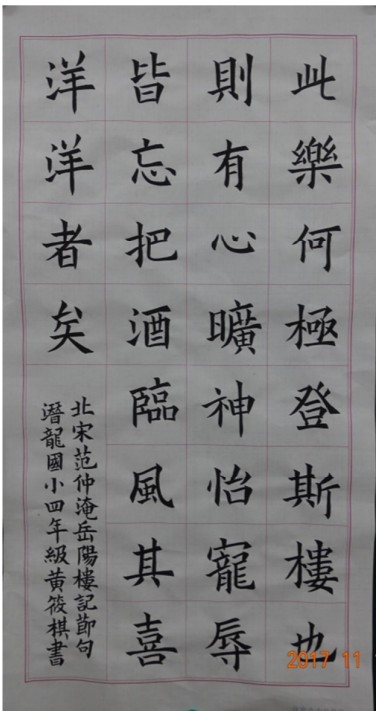 此樂何極登斯樓也
則有心曠神怡寵辱
皆忘把酒臨風其喜
洋洋者矣
北宋范仲淹岳陽樓記節句
潛龍國小四年級黃筱棋書
2017 11